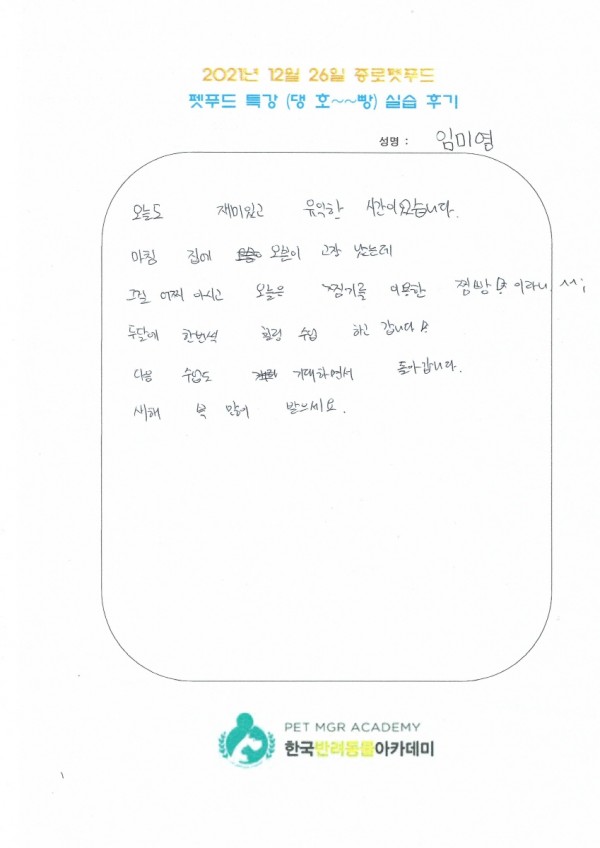 2021년 12월 26일 종로펫푸드
펫푸드 특강 (댕 호~~빵) 실습 후기
성명 : 임미영
오늘도 재미있고 유익한 시간이었습니다.
마침 집에 오븐이 고장 났는데
그걸 어찌 아시고 오늘은 찜기를 이용한 찜빵 이라니 ^^;
두달에 한번씩 힐링 수업 하고 갑니다!
다음 수업도 기대하면서 돌아갑니다.
새해 복 많이 받으세요.
PET MGR ACADEMY
한국반려동물아카데미